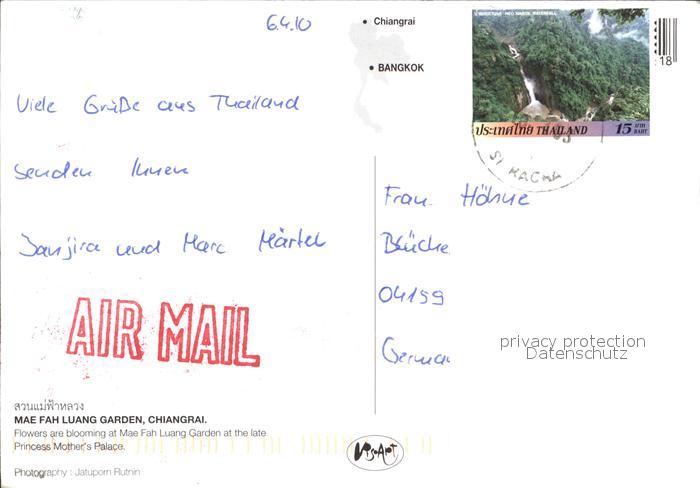 6.4.10
Chiangrai
BANGKOK
18
ประเทศไทย THAILAND 15 บาท BAHT
Viele Grüße aus Thailand
senden Ihnen
Janjira und Marc Märtel
Frau Höhne
Blüche
04159
German
privacy protection
Datenschutz
AIR MAIL
สวนแม่ฟ้าหลวง
MAE FAH LUANG GARDEN, CHIANGRAI.
Flowers are blooming at Mae Fah Luang Garden at the late
Princess Mother's Palace.
Photography : Jatuporn Rutnin